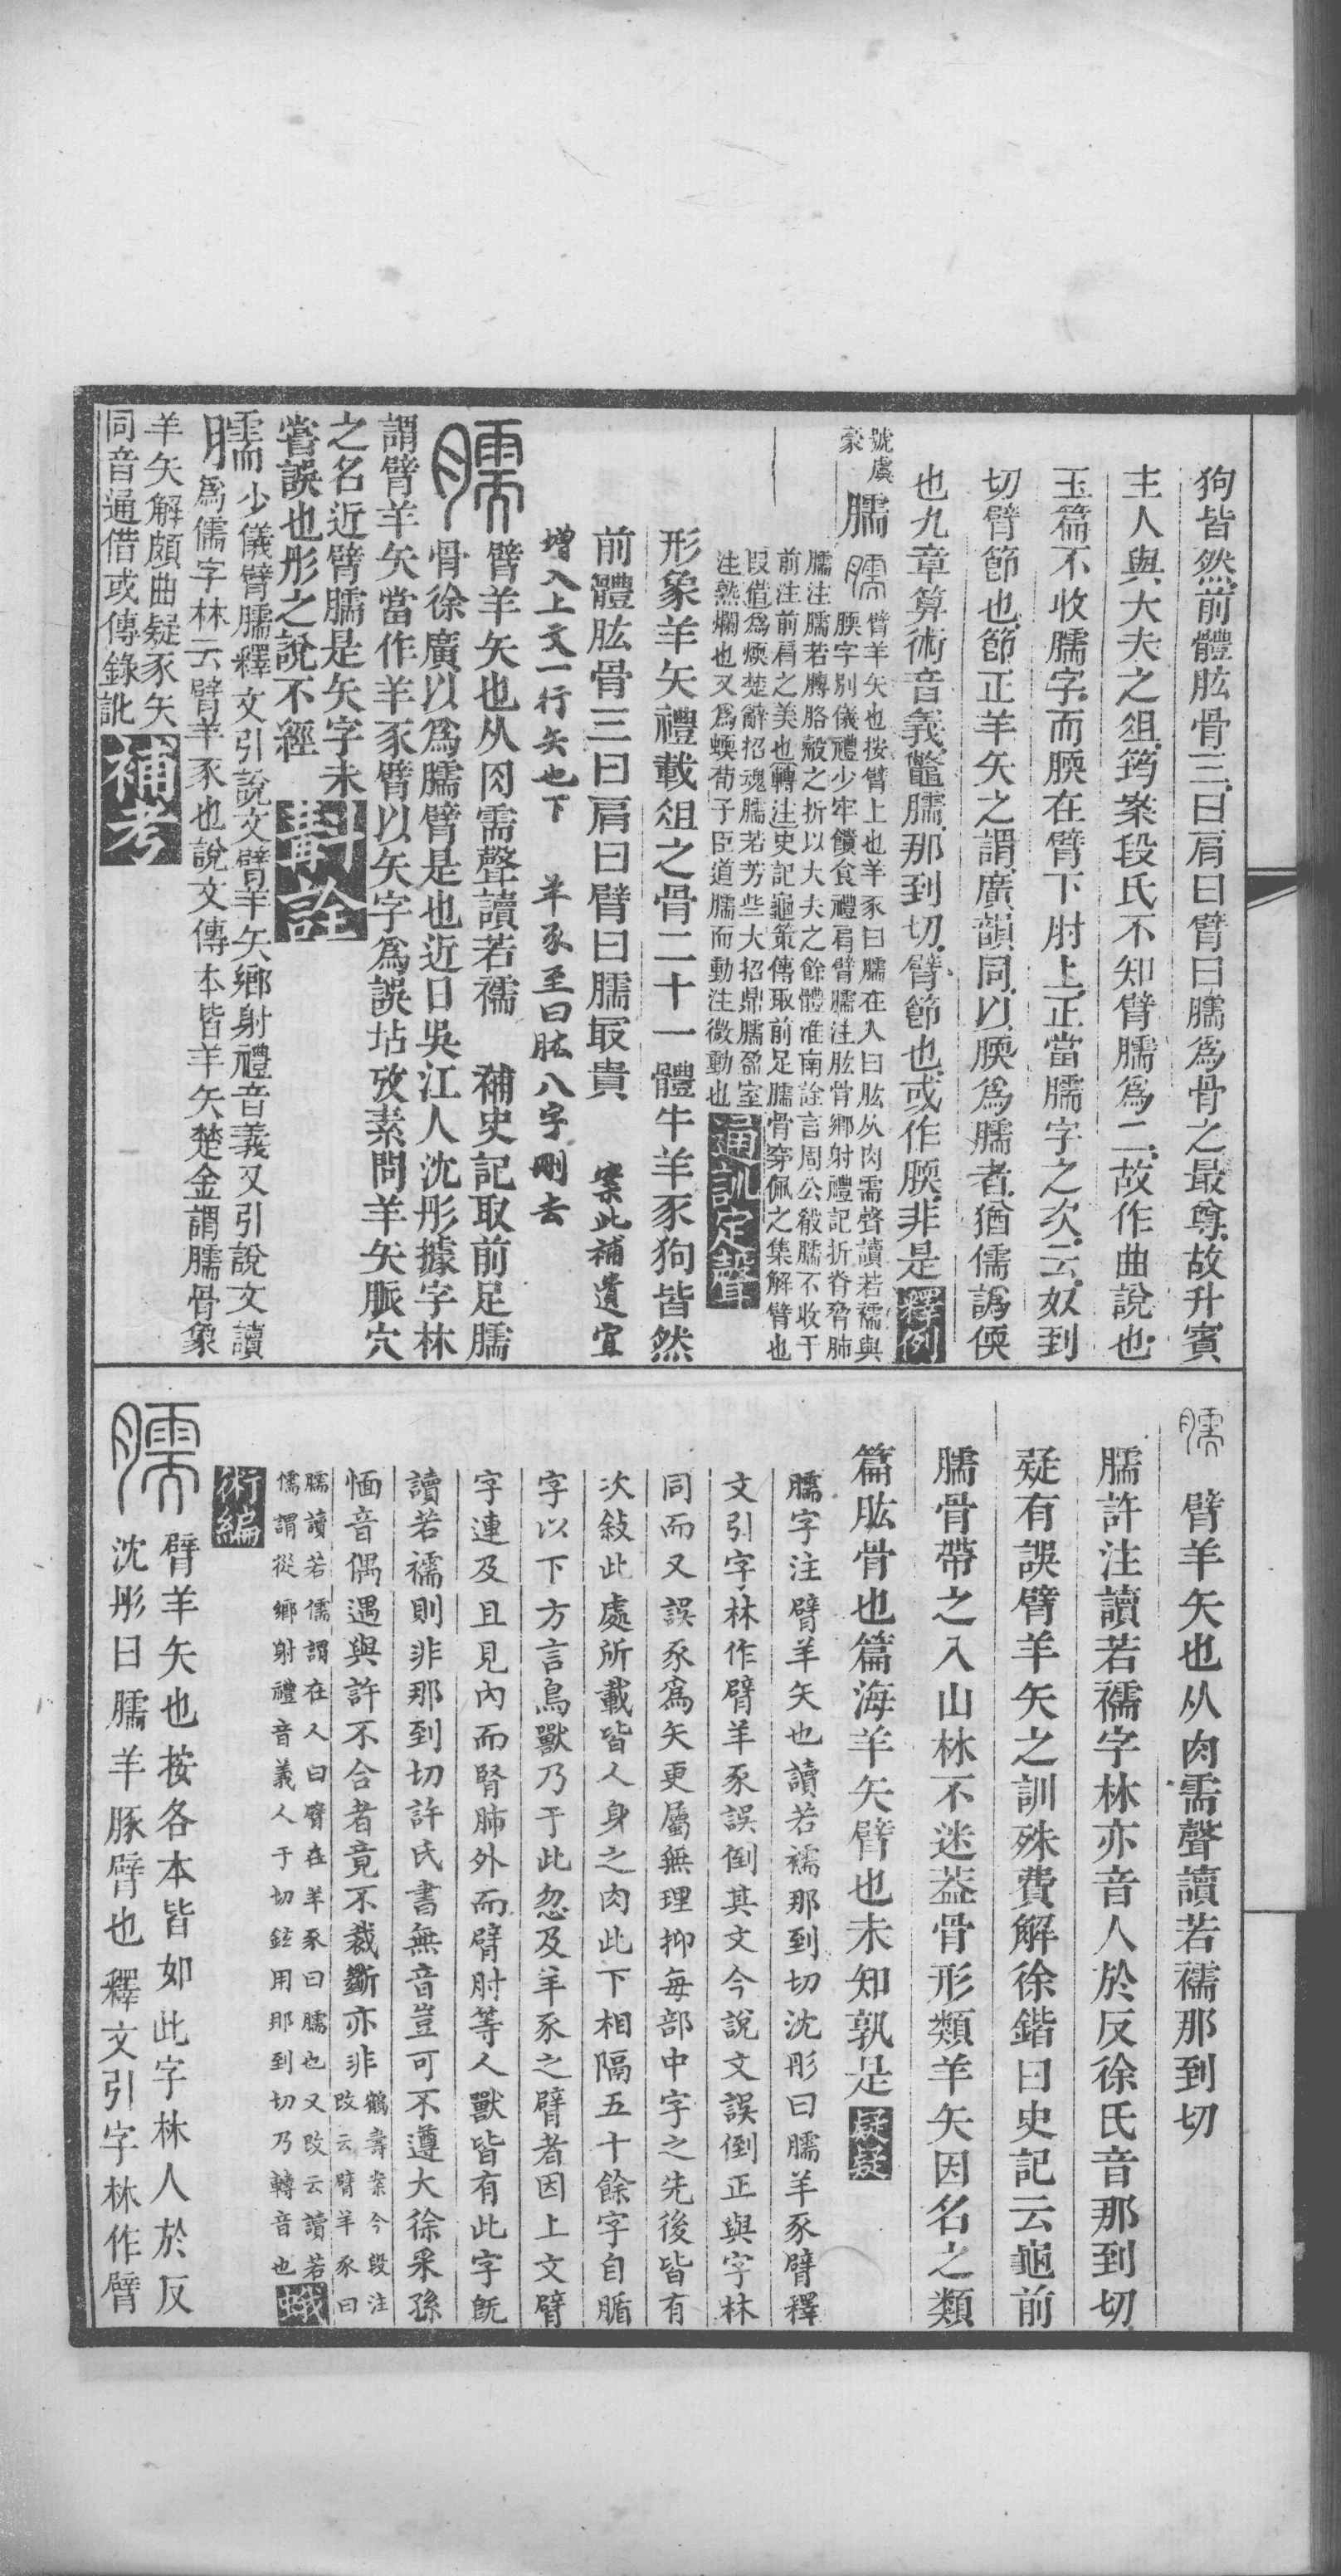 狗皆然前體肱骨三曰肩曰臂曰臑爲骨之最尊故升賓
主人與大夫之俎筠案段氏不知臂臑爲二故作曲說也
玉篇不收臑字而腝在臂下肘上正當臑字之次云奴到
切臂節也節正羊矢之謂廣韻同以腝爲臑者猶儒譌偄
也九章算術音義鼈臑那到切臂節也或作腝非是釋例
號虞
豪
臑
臑臂羊矢也按臂上也羊豕曰臑在人曰肱从肉需聲讀若襦與
腝字別儀禮少牢饋食禮肩臂臑注肱骨鄉射禮記折脊脅肺
臑注臑若膊胳觳之折以大夫之餘體淮南詮言周公殽臑不收于
前注前肩之美也轉注史記龜策傳取前足臑骨穿佩之集解臂也
叚借爲煗楚辭招魂臑若芳些大招鼎臑盈室
注熟爛也又爲蝡荀子臣道臑而動注微動也通訓定聲
形象羊矢禮載俎之骨二十一體牛羊豕狗皆然
前體肱骨三曰肩曰臂曰臑冣貴 案此補遺宜
增入上文一行矢也下 羊豕至曰肱八字刪去
臑臂羊矢也从肉需聲讀若襦 補史記取前足臑
骨徐廣以爲臑臂是也近日吳江人沈彤據字林
謂臂羊矢當作羊豕臂以矢字爲誤坫攷素問羊矢脈穴
之名近臂臑是矢字未
嘗誤也彤之說不經斠詮
臑少儀臂臑釋文引說文臂羊矢鄉射禮音義又引說文讀
爲儒字林云臂羊豕也說文傳本皆羊矢楚金謂臑骨象
羊矢解頗曲疑豕矢
同音通借或傳錄訛補考
臑 臂羊矢也从肉需聲讀若襦那到切
臑許注讀若襦字林亦音人於反徐氏音那到切
疑有誤臂羊矢之訓殊費解徐鍇曰史記云龜前
臑骨帶之入山林不迷葢骨形類羊矢因名之類
篇肱骨也篇海羊矢臂也未知孰是疑疑
臑字注臂羊矢也讀若襦那到切沈彤曰臑羊豕臂釋
文引字林作臂羊豕誤倒其文今說文誤倒正與字林
同而又誤豕爲矢更屬無理抑每部中字之先後皆有
次敍此處所載皆人身之肉此下相隔五十餘字自腯
字以下方言鳥獸乃于此忽及羊豕之臂者因上文臂
字連及且見內而腎肺外而臂肘等人獸皆有此字旣
讀若襦則非那到切許氏書無音豈可不遵大徐采孫
愐音偶遇與許不合者竟不裁斷亦非鶴壽案今段注
改云臂羊豕曰
臑讀若儒謂在人曰臂在羊豕曰臑也又改云讀若
儒謂從鄉射禮音義人于切鉉用那到切乃轉音也蛾
術編
臑臂羊矢也按各本皆如此字林人於反
沈彤曰臑羊豚臂也釋文引字林作臂